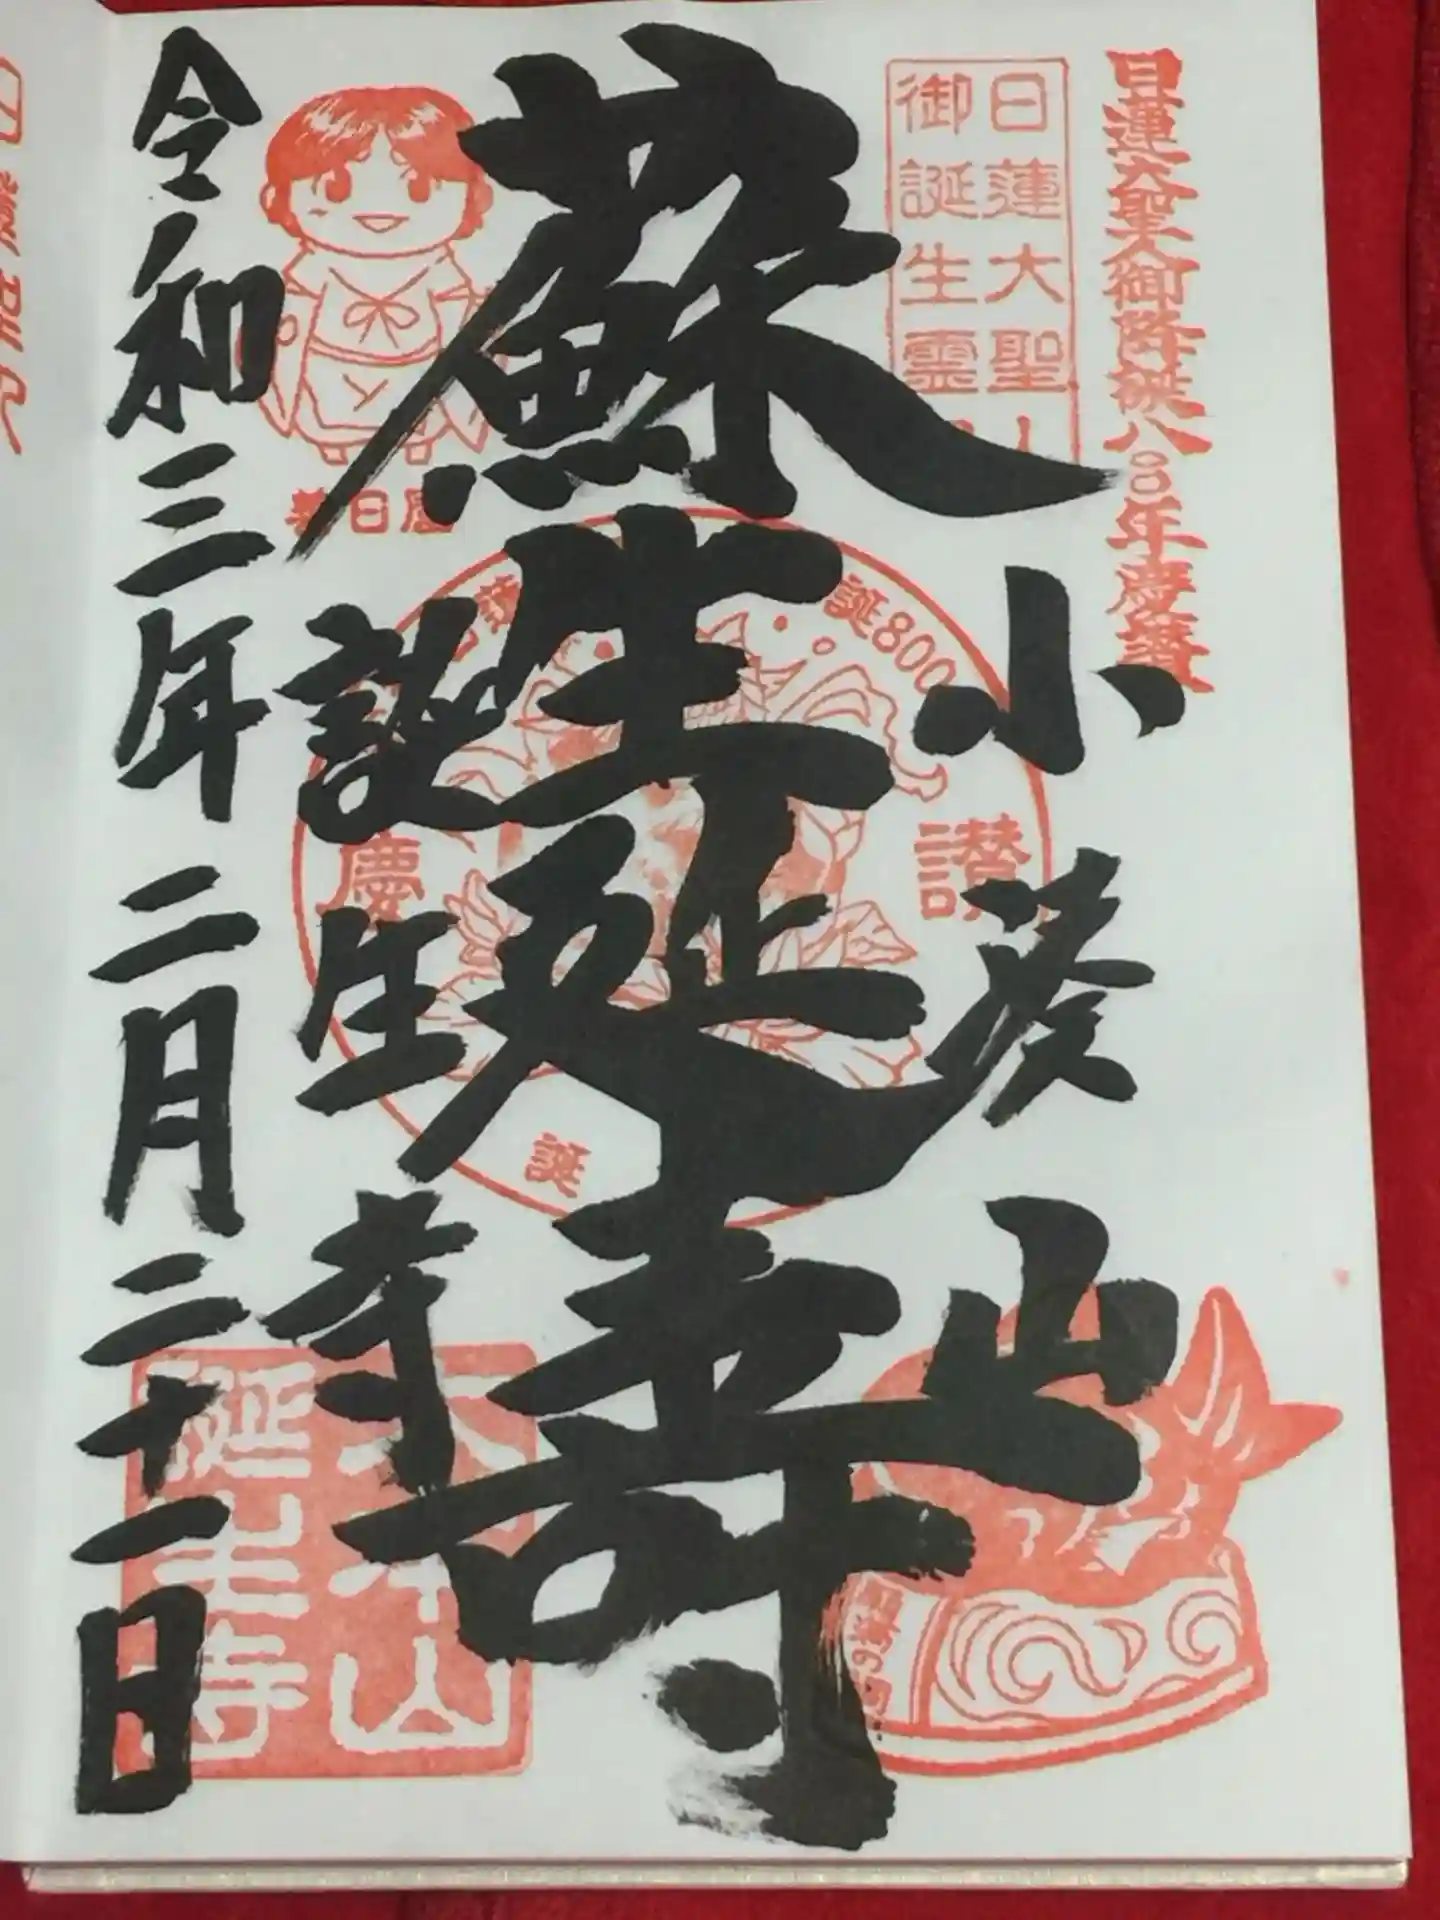 日蓮大聖人御降誕八〇〇年慶讃
日蓮大聖人
御誕生霊
小湊山
蘇生延寿
誕生寺
令和三年二月二十一日
誕800
慶
讃
誕
山
誕生寺